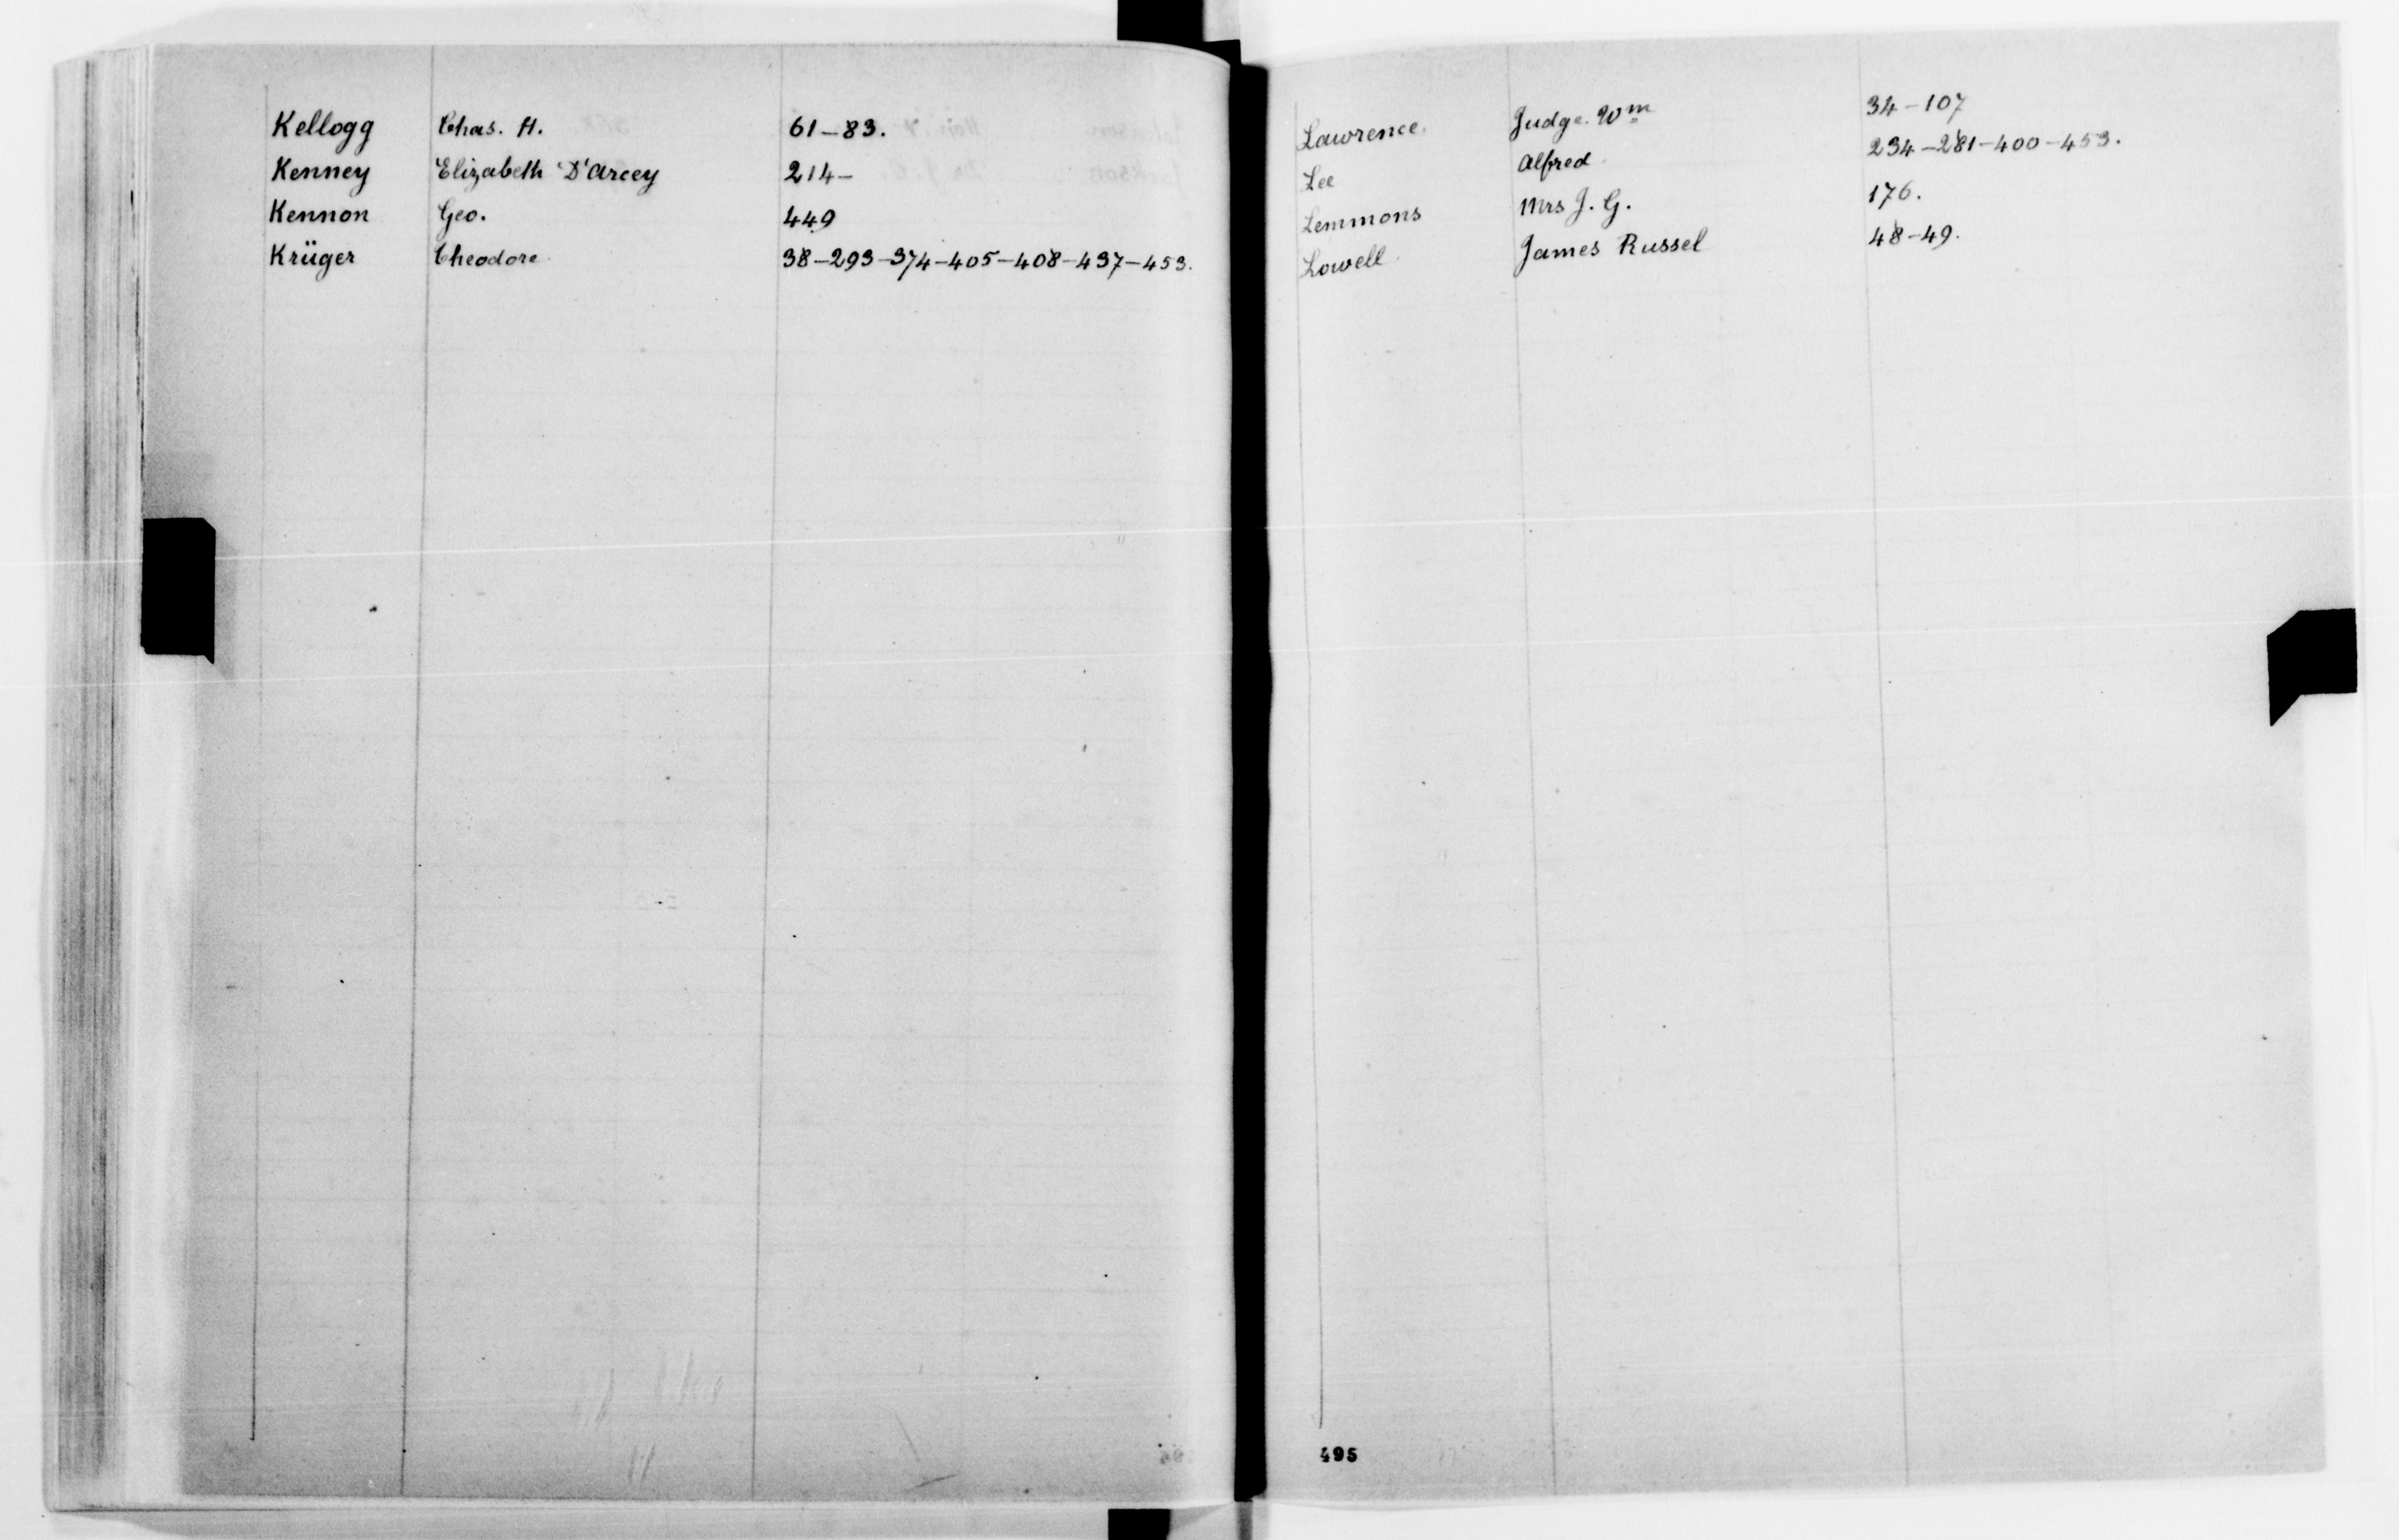 Kellogg Chas. H. 61-83.
Kenney Elizabeth D'Arcey 214-
Kennon Geo. 449
Krüger Theodore 38-293-374-405-408-437-453.
Lawrence Judge Wm 34-107
Lee Alfred 234-281-400-453.
Lemmons Mrs J. G. 176.
Lowell James Russel 48-49.
495